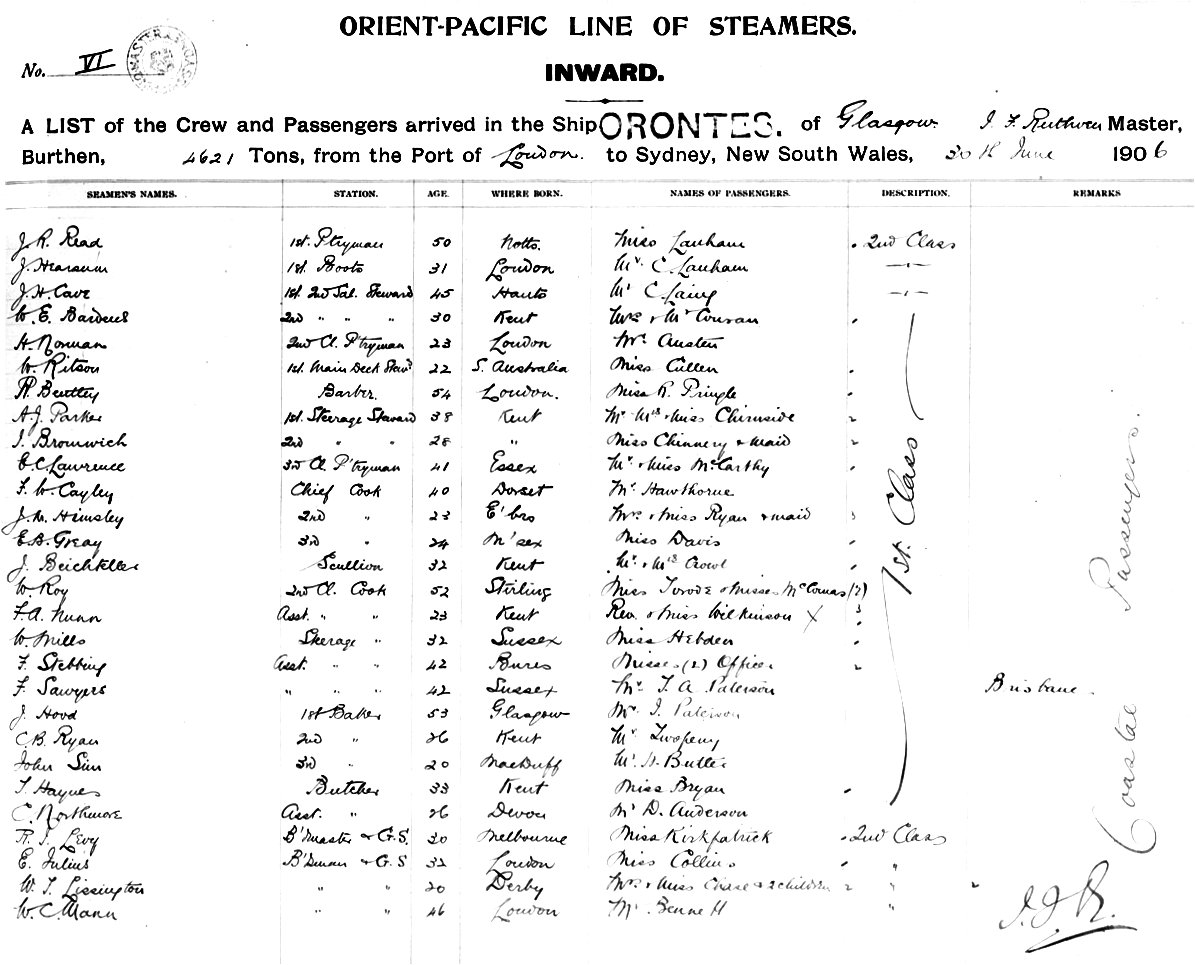 ORIENT-PACIFIC LINE OF STEAMERS.
No. VI
INWARD.
A LIST of the Crew and Passengers arrived in the Ship ORONTES. of Glasgow. J. F. Ruthven Master,
Burthen, 4621 Tons, from the Port of London. to Sydney, New South Wales, 30th June 1906
SEAMEN'S NAMES. STATION. AGE. WHERE BORN. NAMES OF PASSENGERS. DESCRIPTION. REMARKS
J. R. Read 1st. P'tryman 50 Notts. Miss Lanham 2nd Class
J. Hearsum 1st. Boots 31 London Mr. C. Lanham —"—
J. H. Cave 1st. 2nd Sal. Steward 45 Hants Mr C. Laing —"—
W. E. Bardens 2nd " " " 30 Kent Mrs & Mr Conran
H. Norman 2nd Cl. P'tryman 23 London Mr. Austen
W. Ritson 1st. Main Deck Stew'd 22 S. Australia Miss Cullen
R. Bentley Barber. 54 London. Miss R. Pringle
A. J. Parker 1st. Steerage Steward 38 Kent Mr Mrs & Miss Chirnside
J. Bromwich 2nd " " 28 " Miss Chinnery & maid
E. C. Lawrence 3rd Cl P'tryman 41 Essex Mr. & Miss McCarthy
F. W. Cayley Chief Cook 40 Dorset Mr. Hawthorne
J. M. Hemsley 2nd " 23 E'bro Mrs & Miss Ryan & maid
E. B. Greay 3rd " 24 M'sex Miss Davis
J. Beichteller Scullion 32 Kent Mr. & Mrs Crowl
W. Roy 2nd Cl. Cook 52 Stirling Miss & Misses McComas (2)
F. A. Nunn Asst. " " 23 Kent Rev. & Miss Wilkinson X
W. Mills Steerage " 32 Sussex Miss Hebden
F. Stebbing Asst. " " 42 Bures Misses (2) Officer
F. Sawyers " " " 42 Sussex Mr. T. A. Paterson Brisbane.
J. Hood 1st Baker 53 Glasgow Mr. J. Paterson
C. B. Ryan 2nd " 26 Kent Mr Twopeny
John Sim 3rd " 20 MacDuff Mr. H. Butler
T. Haynes Butcher 33 Kent Miss Bryan
C. Northmore Asst. " 26 Devon Mr D. Anderson
R. J. Levy B'dmaster & G.S. 30 Melbourne Miss Kirkpatrick 2nd Class
E. Julius B'dman & G.S 32 London Miss Collins "
W. T. Lissington " " 20 Derby Mrs & Miss Chase & 2 children "
W. C. Mann " " 46 London Mr Bennett "
1st. Class
Coastal Passengers.
J. F. R.